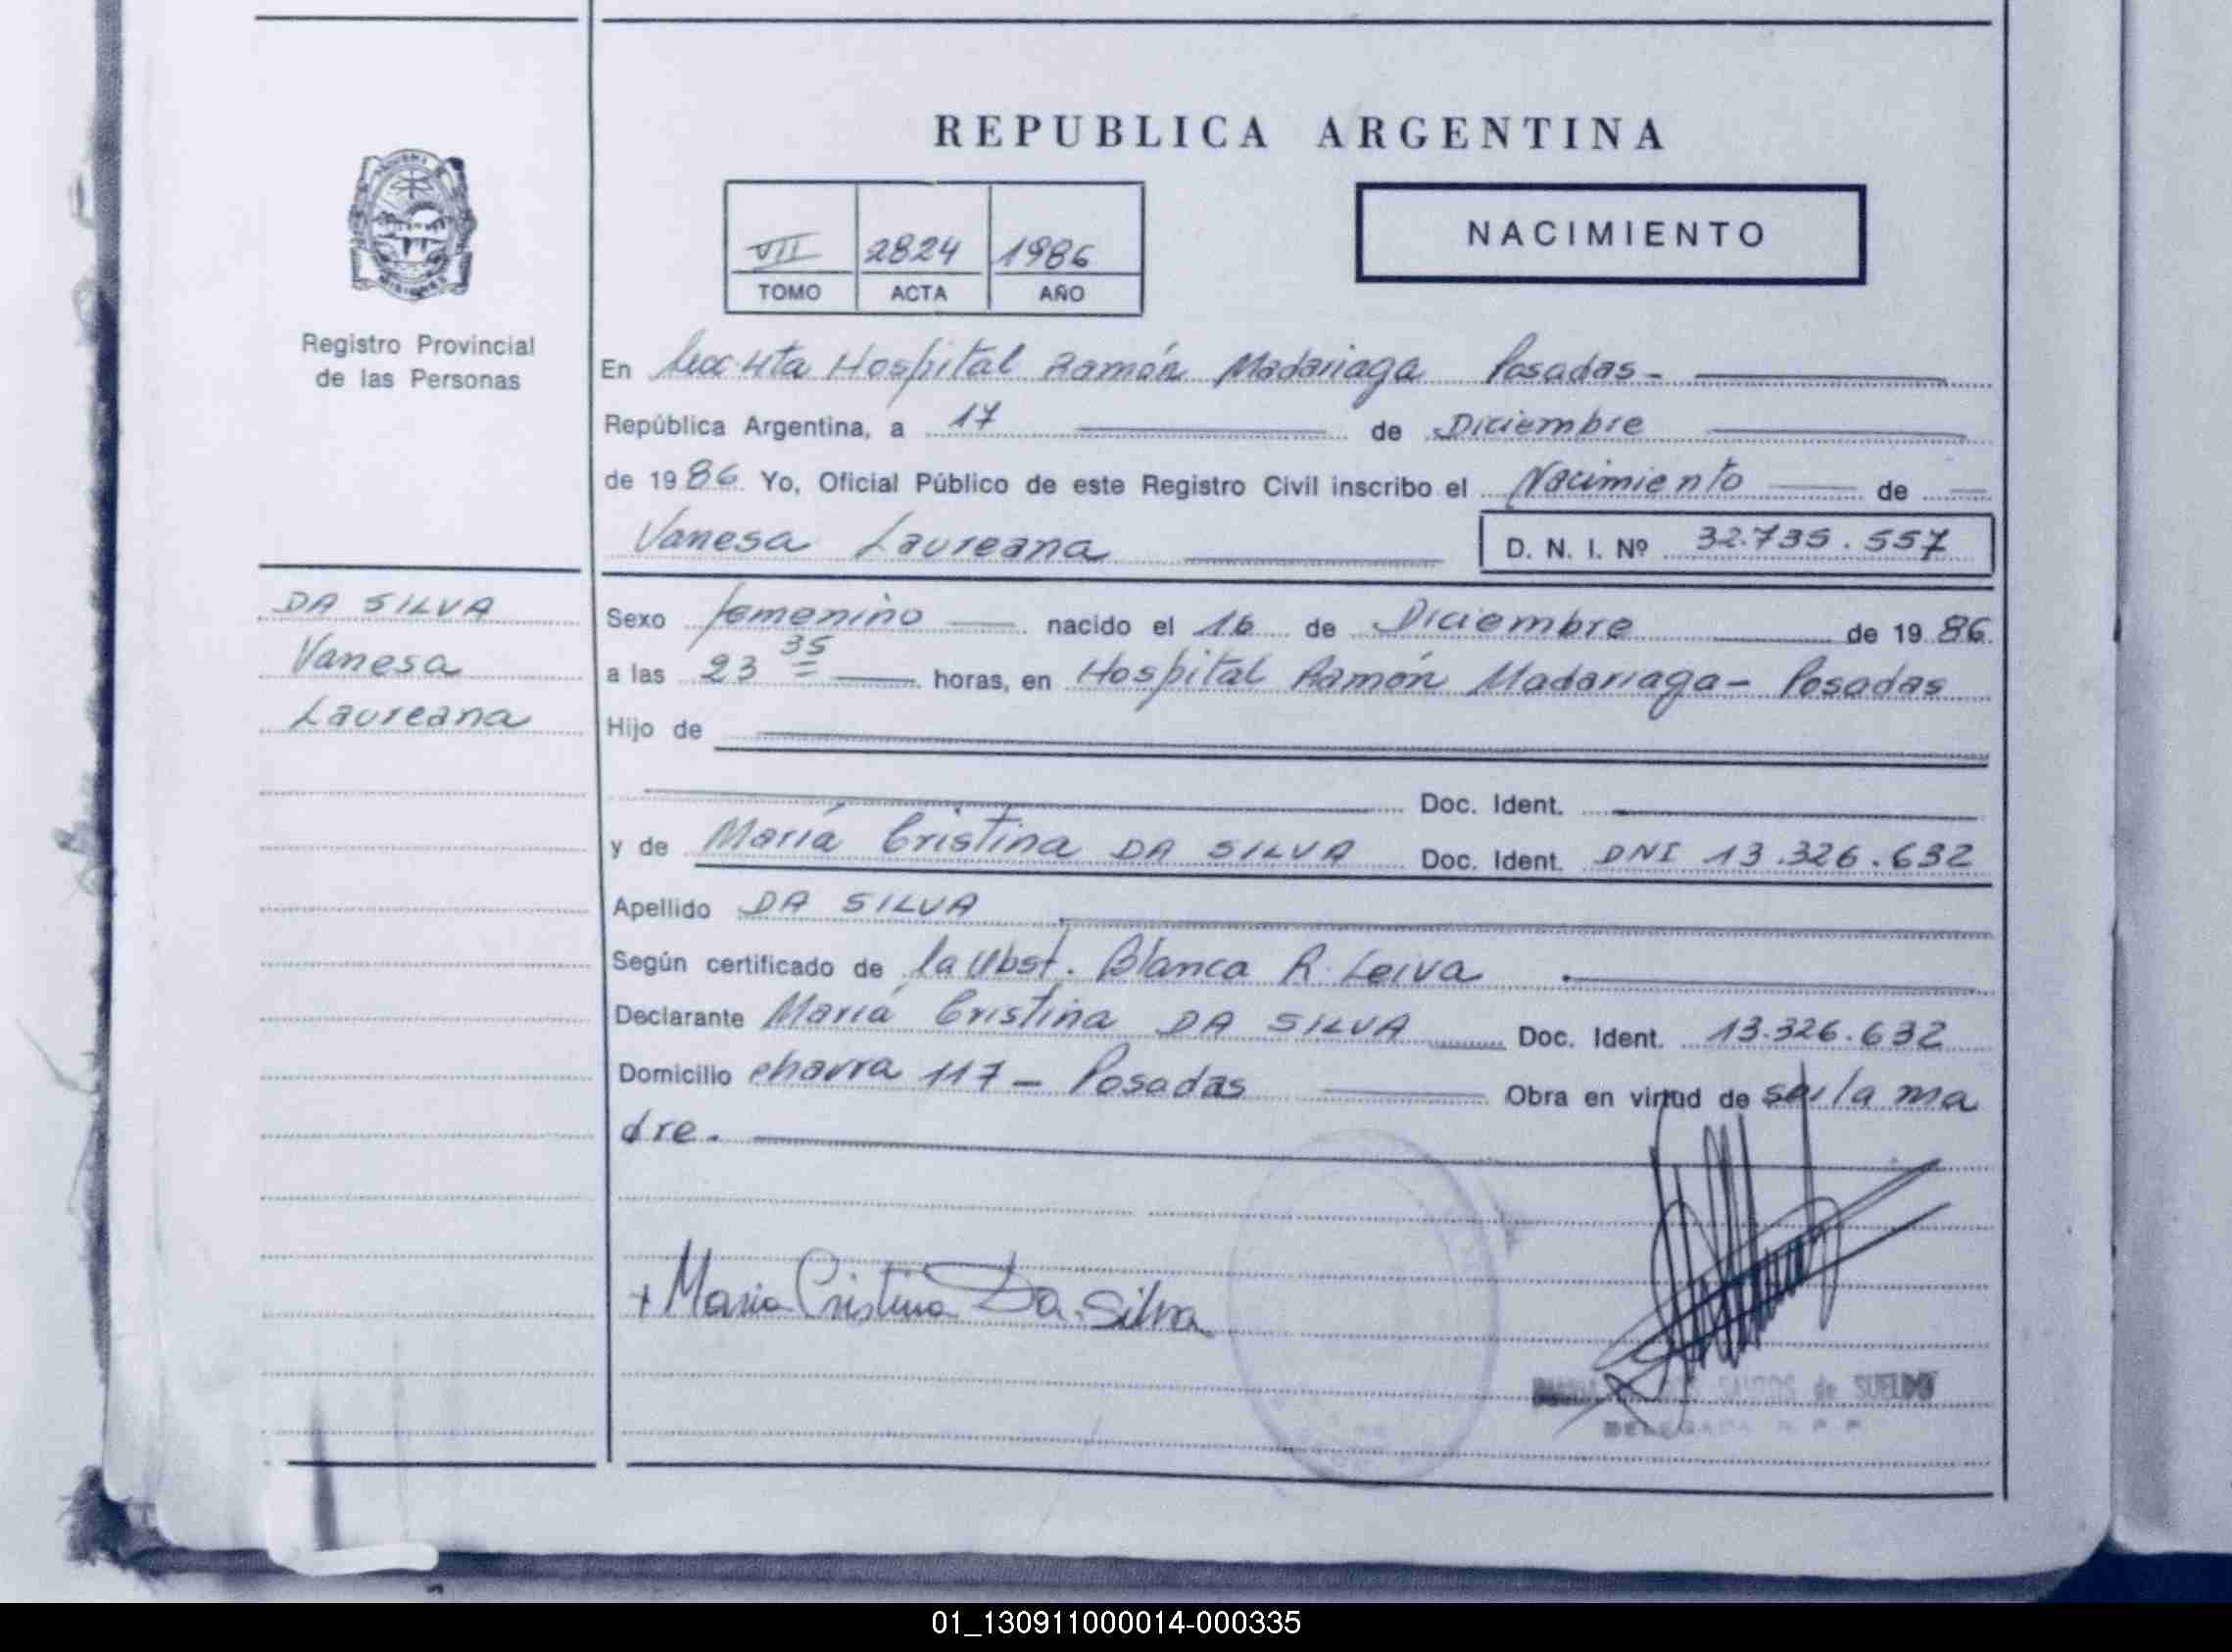 REPUBLICA ARGENTINA
NACIMIENTO
VII 2824 1986
TOMO ACTA AÑO
Registro Provincial
de las Personas
En Secc. 4ta Hospital Ramón Madariaga Posadas-
República Argentina, a 17 de Diciembre
de 1986 Yo, Oficial Público de este Registro Civil inscribo el Nacimiento de
Vanesa Laureana D. N. I. Nº 32.735.557
DA SILVA
Vanesa
Laureana
Sexo femenino nacido el 16 de Diciembre de 1986.
a las 23 35 horas, en Hospital Ramón Madariaga- Posadas
Hijo de
Doc. Ident.
y de María Cristina DA SILVA Doc. Ident. DNI 13.326.632
Apellido DA SILVA
Según certificado de la Obst. Blanca R. Leiva
Declarante María Cristina DA SILVA Doc. Ident. 13.326.632
Domicilio chacra 117 - Posadas Obra en virtud de ser la ma
dre.
+ Maria Cristina Da Silva
SANTOS de SUELDO
DELEGADA R. P. P.
01_130911000014-000335